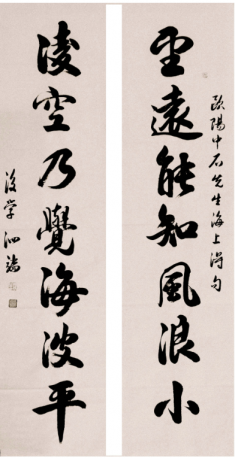 歐陽中石先生海上得句
望遠能知風浪小
淩空乃覺海波平
後學